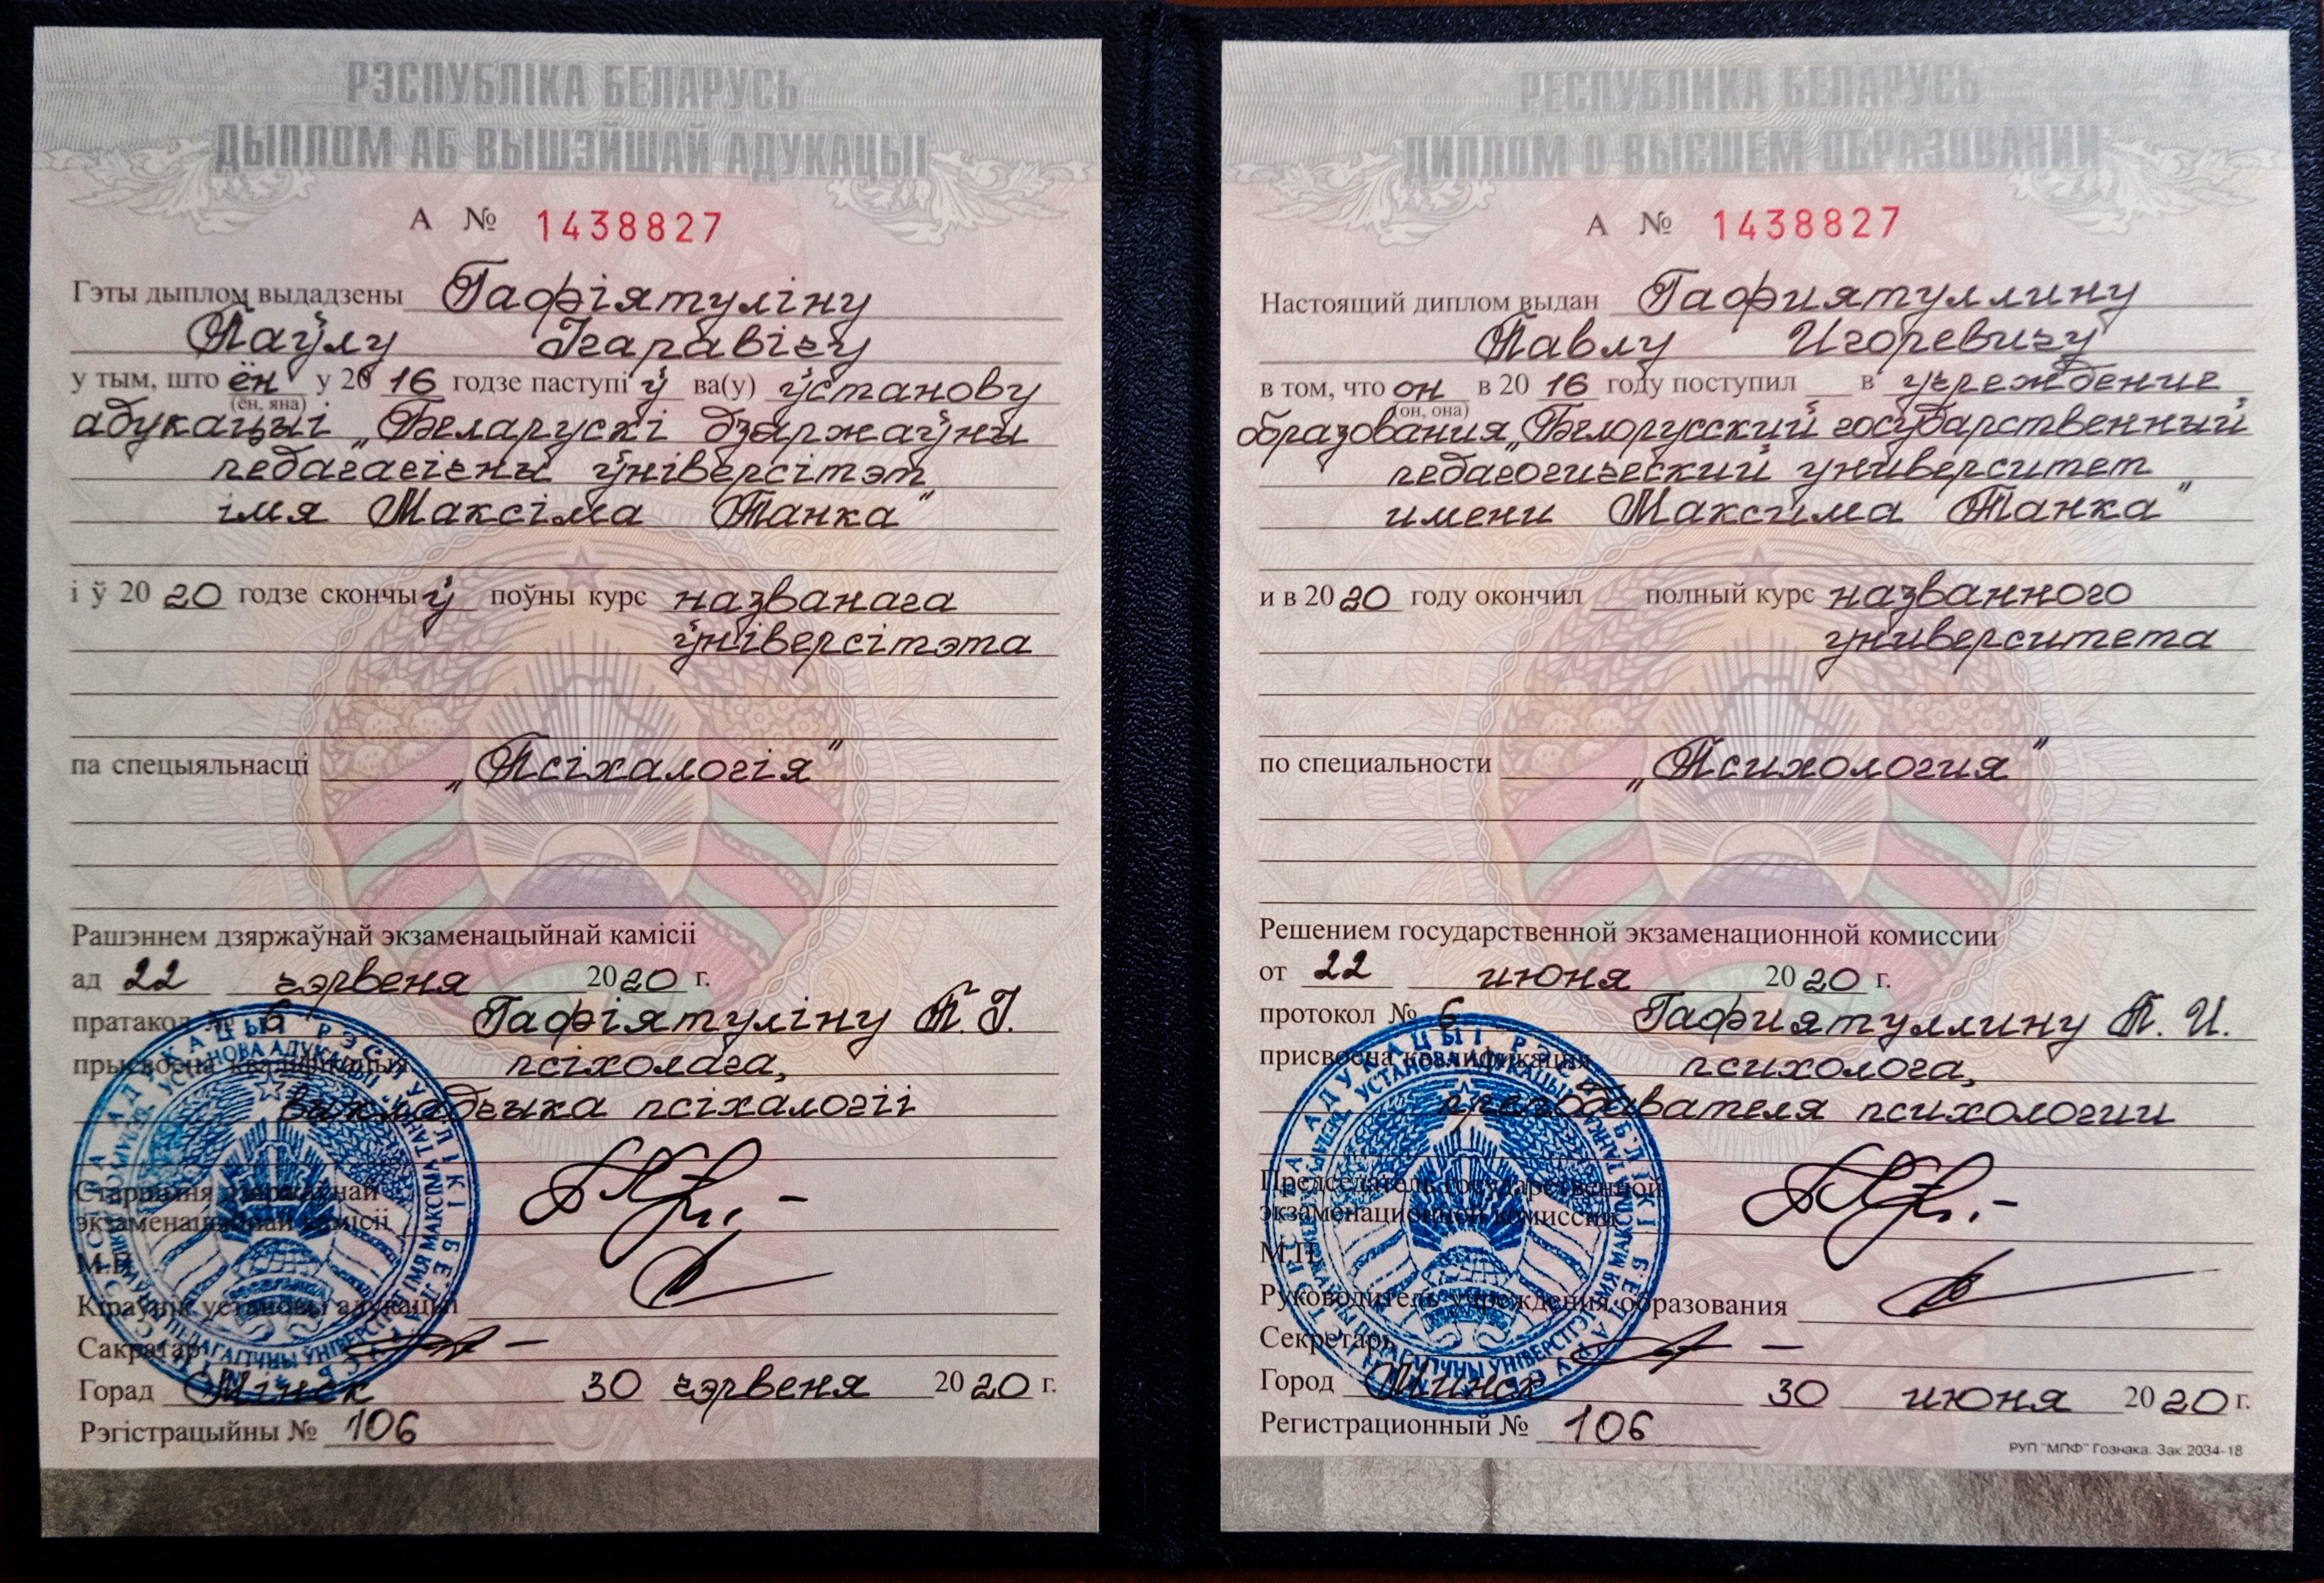 РЭСПУБЛІКА БЕЛАРУСЬ
ДЫПЛОМ АБ ВЫШЭЙШАЙ АДУКАЦЫІ
А № 1438827
Гэты дыплом выдадзены Гафіятуліну
Паўлу Ігаравічу
у тым, што ён у 20 16 годзе паступіў ва(у) ўстанову
(ён, яна)
адукацыі „Беларускі дзяржаўны
педагагічны ўніверсітэт
імя Максіма Танка"
і ў 20 20 годзе скончыў поўны курс названага
ўніверсітэта
па спецыяльнасці „Псіхалогія"
Рашэннем дзяржаўнай экзаменацыйнай камісіі
ад 22 чэрвеня 20 20 г.
пратакол № 6 Гафіятуліну П. І.
прысвоена кваліфікацыя псіхолага,
выкладчыка псіхалогіі
Старшыня дзяржаўнай
экзаменацыйнай камісіі
М.П.
Кіраўнік установы адукацыі
Сакратар
Горад Мінск 30 чэрвеня 20 20 г.
Рэгістрацыйны № 106
РЕСПУБЛИКА БЕЛАРУСЬ
ДИПЛОМ О ВЫСШЕМ ОБРАЗОВАНИИ
А № 1438827
Настоящий диплом выдан Гафиятуллину
Павлу Игоревичу
в том, что он в 20 16 году поступил в учреждение
(он, она)
образования „Белорусский государственный
педагогический университет
имени Максима Танка"
и в 20 20 году окончил полный курс названного
университета
по специальности „Психология"
Решением государственной экзаменационной комиссии
от 22 июня 20 20 г.
протокол № 6 Гафиятуллину П. И.
присвоена квалификация психолога,
преподавателя психологии
Председатель государственной
экзаменационной комиссии
М.П.
Руководитель учреждения образования
Секретарь
Город Минск 30 июня 20 20 г.
Регистрационный № 106
РУП "МПФ" Гознака. Зак.2034-18